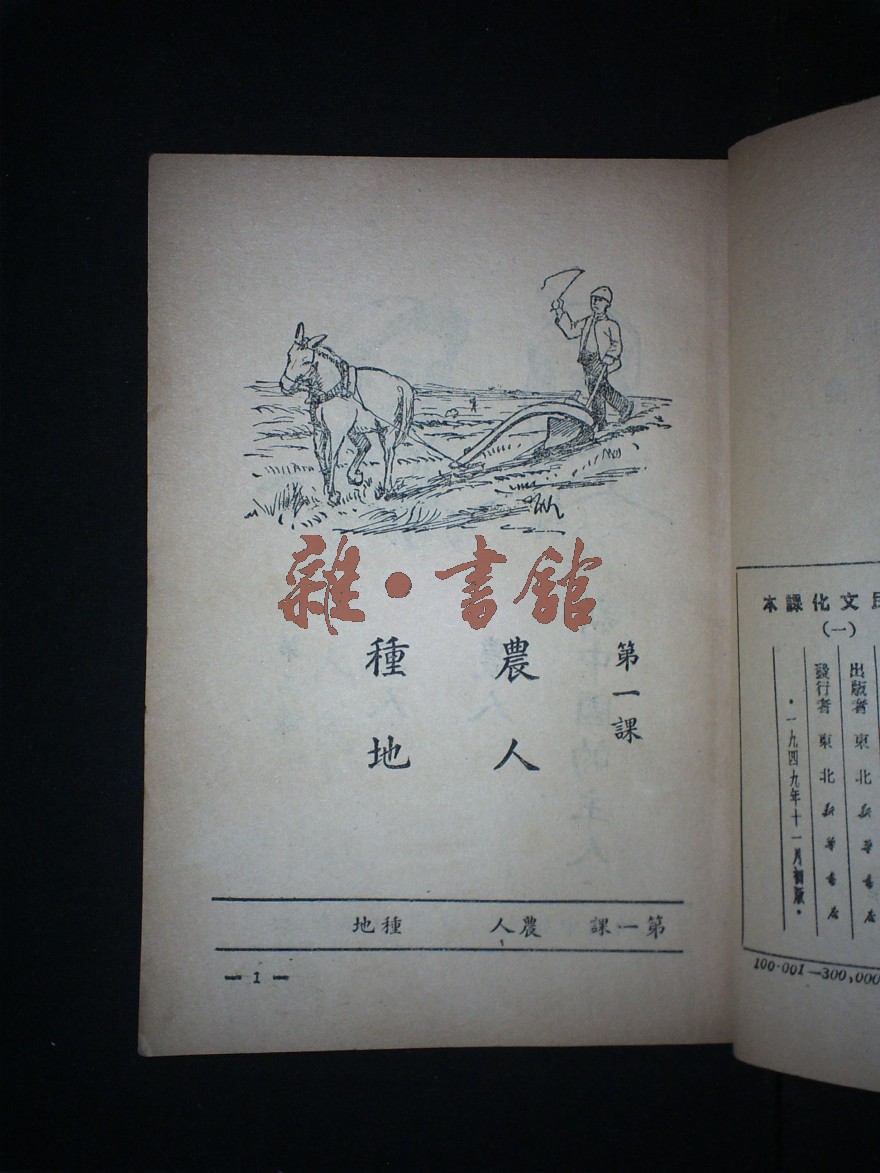 雜·書館
第一課
農人
種地
第一課 農人 種地
— 1 —
民文化課本
(一)
出版者 東北新華書店
發行者 東北新華書店
·一九四九年十一月初版·
100·001—300,000